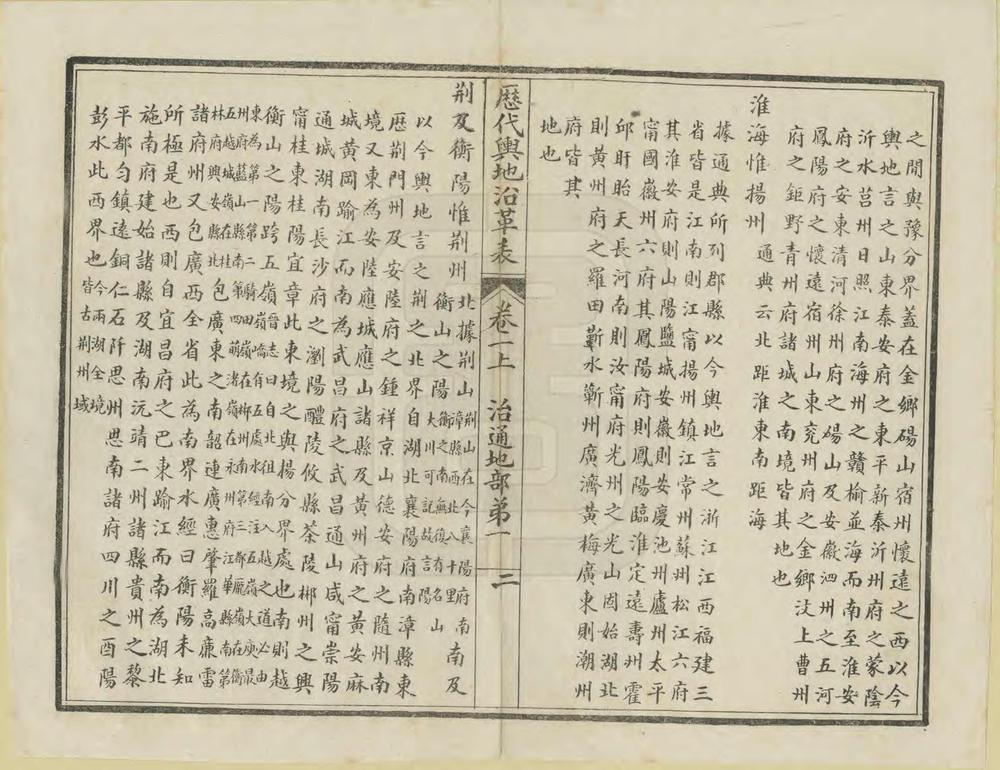 之間與豫分界蓋在金鄉碭山宿州懷遠之西以今
輿地言之山東泰安府之東平新泰沂州府之蒙陰
沂水莒州日照江南海州之贛榆並海而南至淮安
府之安東清河徐州府之碭山及安徽泗州之五河
鳳陽府之懷遠宿州山東兗州府之金鄉汶上曹州
府之鉅野青州府諸城之南境皆其地也
淮海惟揚州 通典云北距淮東南距海
據通典所列郡縣以今輿地言之浙江江西福建三
省皆是江南則江甯揚州鎮江常州蘇州松江六府
其淮安府則山陽鹽城安徽則安慶池州廬州太平
甯國徽州六府其鳳陽府則鳳陽臨淮定遠壽州霍
邱盱眙天長河南則汝甯府光州之光山固始湖北
則黃州府之羅田蘄水蘄州廣濟黃梅廣東則潮州
府皆其
地也
歷代輿地沿革表 卷二上 治通地部弟一 二
荆及衡陽惟荆州 北據荆山 荆山在今襄陽府漳縣西北八十里 南及
衡山之陽 衡之南無復有名山大川可記故言陽
以今輿地言之荆之北界自湖北襄陽府南漳縣東
歷荆門州及安陸府之鍾祥京山德安府之隨州南
境又東為安陸應城應山諸縣及黃州府之黃安麻
城黃岡踰江而南為武昌府之武昌通山咸甯崇陽
通城湖南長沙府之瀏陽醴陵攸縣茶陵郴州之興
甯桂東桂陽宜章此東境之與楊分界處也南則越
衡山之陽跨五嶺 晉志曰自北徂南入越之道必由嶺嶠有五處水經注五嶺大庾最
東為第一第二騎田嶺在郴州第三都龐嶺在衡州府藍山縣南第四萌渚嶺在永州府江華縣南第
五越城嶺在桂林府興安縣北 包廣東之南韶連廣惠肇羅高廉雷
諸府州又包廣西全省此為南界水經曰衡陽未知
所極是也西則自宜昌府之巴東踰江而南為湖北
施南府建始諸縣及湖南沅靖二州諸縣貴州之黎
平都勻鎮遠銅仁石阡思州思南諸府四川之酉陽
彭水此西界也 今兩湖全境皆古荆州域